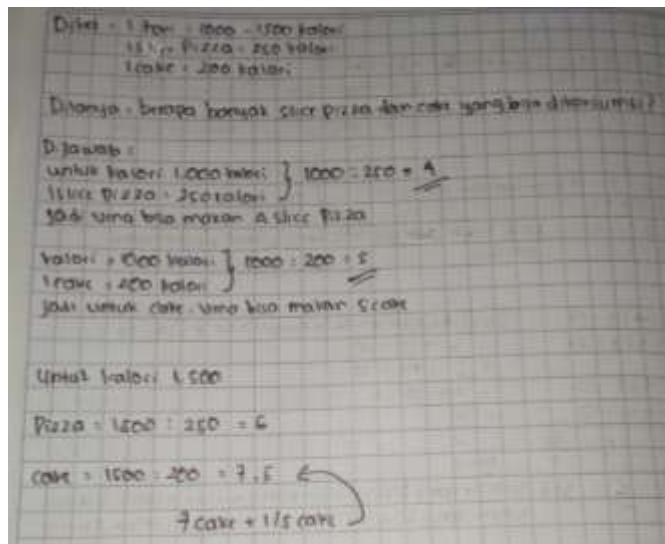 Diket = 1 hari = 1000 - 1500 kalori
1 slice Pizza = 250 kalori
1 cake = 200 kalori
Ditanya = berapa banyak slice pizza dan cake yang bisa dikonsumsi?
Dijawab =
untuk kalori 1.000 kalori } 1000 : 250 = 4
1 slice pizza = 250 kalori
jadi bisa makan 4 slice pizza
kalori = 1000 kalori } 1000 : 200 = 5
1 cake = 200 kalori
jadi untuk cake bisa makan 5 cake
untuk kalori 1.500
Pizza = 1500 : 250 = 6
cake = 1500 : 200 = 7,5
7 cake + 1/5 cake